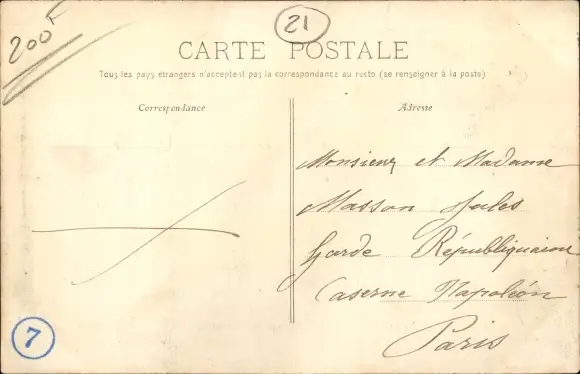 200F
21
CARTE POSTALE
Tous les pays étrangers n'acceptent pas la correspondance au recto (se renseigner à la poste)
Correspondance
Adresse
Monsieur et Madame
Masson Jules
Garde Républiquaine
Caserne Napoléon
Paris
7